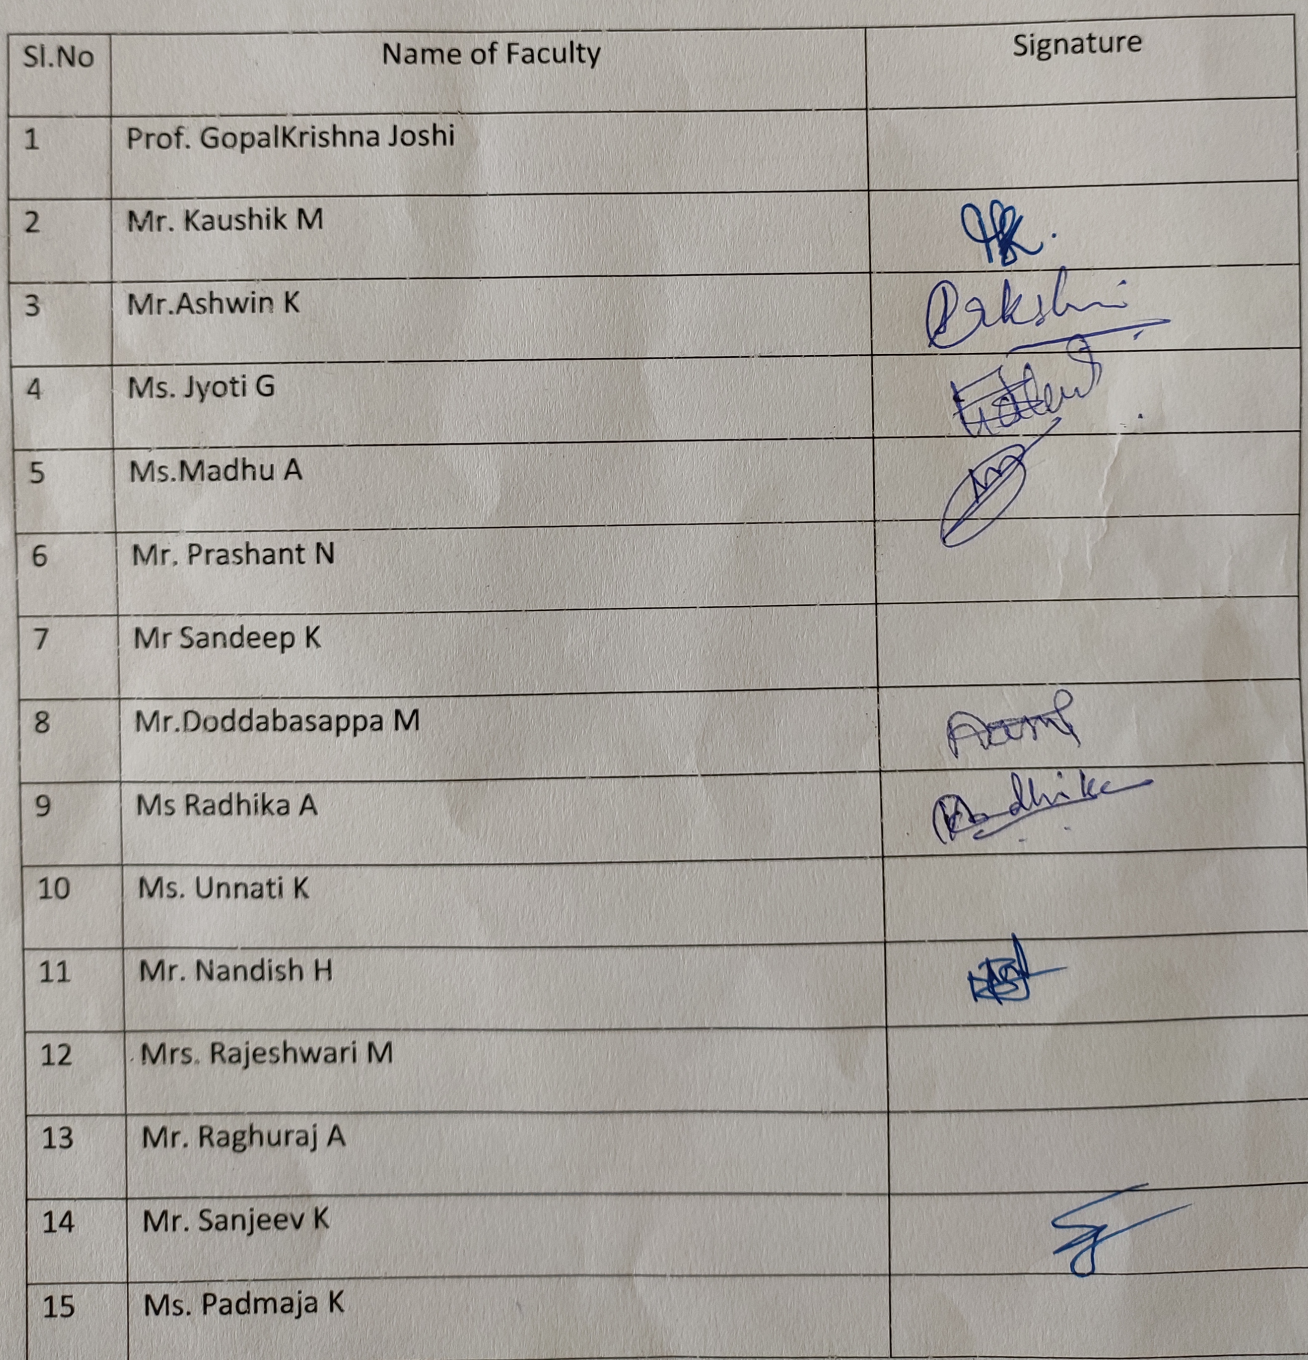 Sl.No Name of Faculty Signature
1 Prof. GopalKrishna Joshi
2 Mr. Kaushik M
3 Mr.Ashwin K
4 Ms. Jyoti G
5 Ms.Madhu A
6 Mr. Prashant N
7 Mr Sandeep K
8 Mr.Doddabasappa M
9 Ms Radhika A Radhika
10 Ms. Unnati K
11 Mr. Nandish H
12 Mrs. Rajeshwari M
13 Mr. Raghuraj A
14 Mr. Sanjeev K
15 Ms. Padmaja K